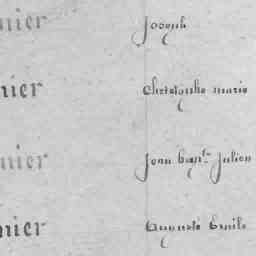 nier Joseph
nier Christophe marie
nier Jean bapt^te Julien
nier Auguste Emile